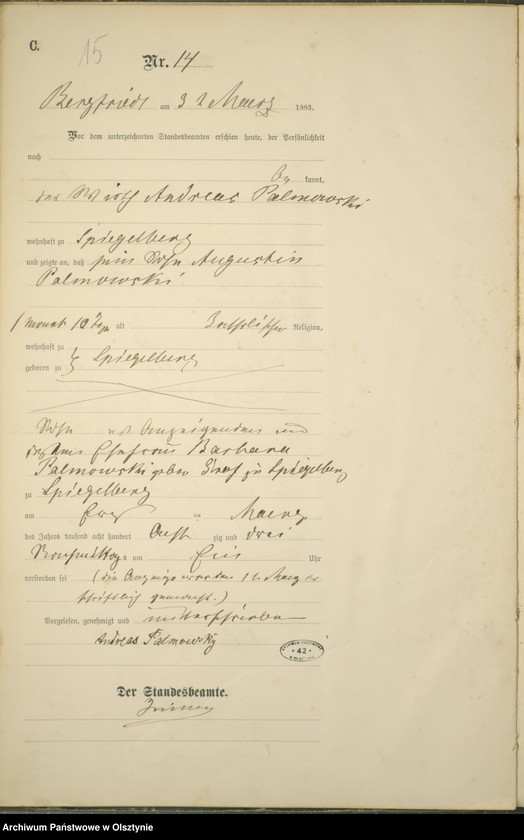 C.
15
Nr. 14
Bergfriede am 3 Maerz 1883.
Vor dem unterzeichneten Standesbeamten erschien heute, der Persönlichkeit
nach
be kannt,
der Wirth Andreas Palmowski
wohnhaft zu Spiegelberg
und zeigte an, daß sein Sohn Augustin
Palmowski
1 Monat 10 Tage alt Katholischer Religion,
wohnhaft zu
geboren zu } Spiegelberg
Sohn des Anzeigenden und
Ehefrau Barbara
Palmowski geboren zu Spiegelberg
zu Spiegelberg
am Maerz
des Jahres tausend acht hundert acht zig und drei
Nachmittags um Eins Uhr
verstorben sei (die Anzeige
schriftlich gemacht.)
Vorgelesen, genehmigt und unterschrieben
Andreas Palmowsky
42
Der Standesbeamte.
Archiwum Państwowe w Olsztynie